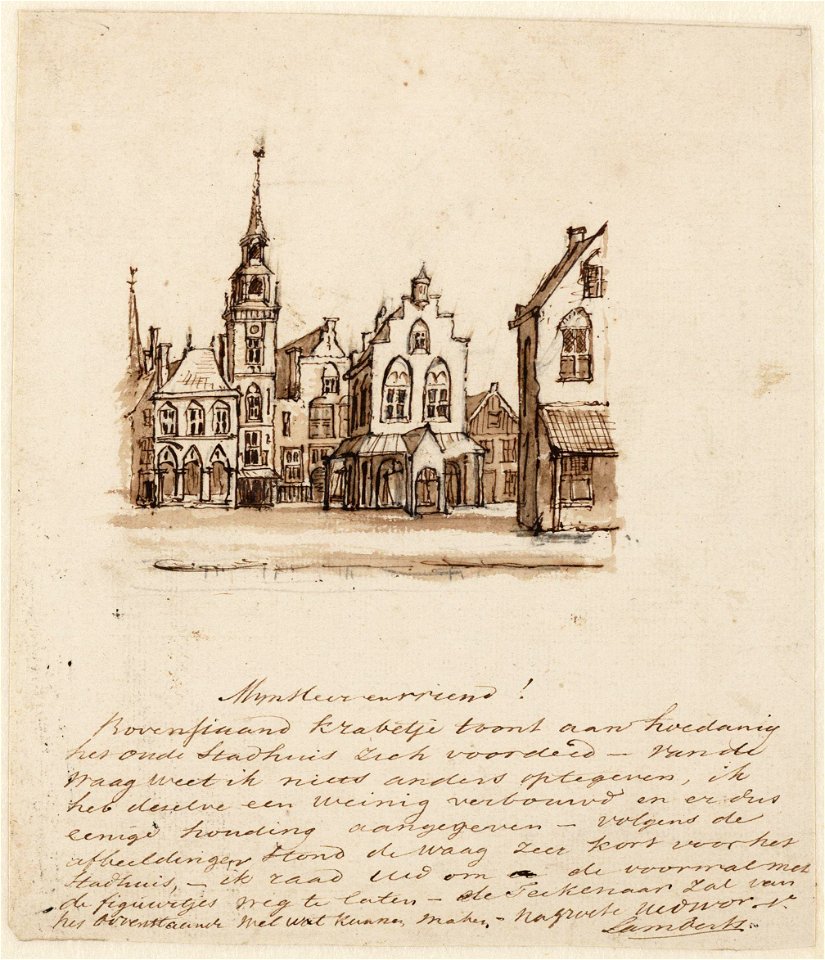 Mijn Heer en vriend!
Bovenstaand krabeltje toont aan hoedanig
het oude Stadhuis zich voordeed – van de
Waag weet ik niets anders optegeven, ik
heb deselve een weinig verbouwd en er dus
eenige houding aangegeven – volgens de
afbeeldingen stond de Waag zeer kort voor het
Stadhuis, – ik raad Ued om de voorwal met
de figuurtjes weg te laten – de Teekenaar zal van
het bovenstaande wel wat kunnen maken – na groete Uedw
Lamberts